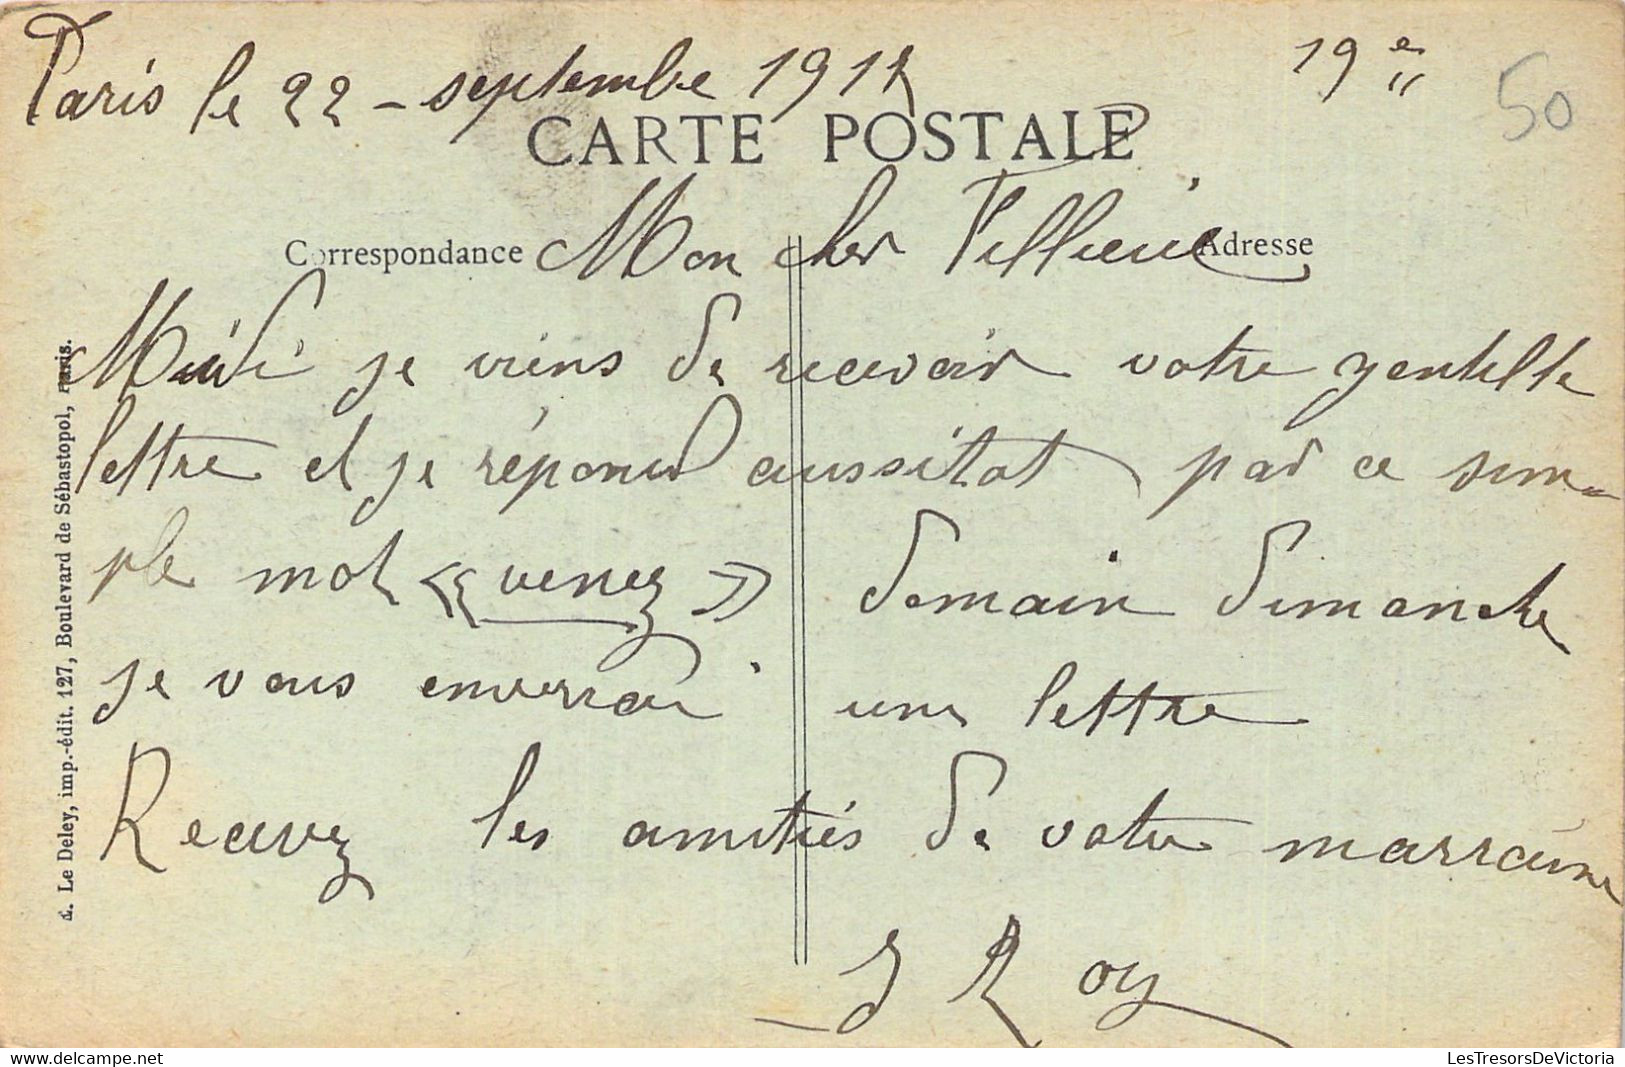 Paris le 22 - septembre 1917 19e
50
CARTE POSTALE
Correspondance Mon cher Adresse
Midi je viens de recevoir votre gentille
lettre et je répond aussitot par ce sim-
ple mot « venez » demain dimanche
je vous enverrai une lettre
Recevez les amitiés de votre marraine
J Roy
A. Le Deley, imp.-édit. 127, Boulevard de Sébastopol, Paris.
LesTresorsDeVictoria